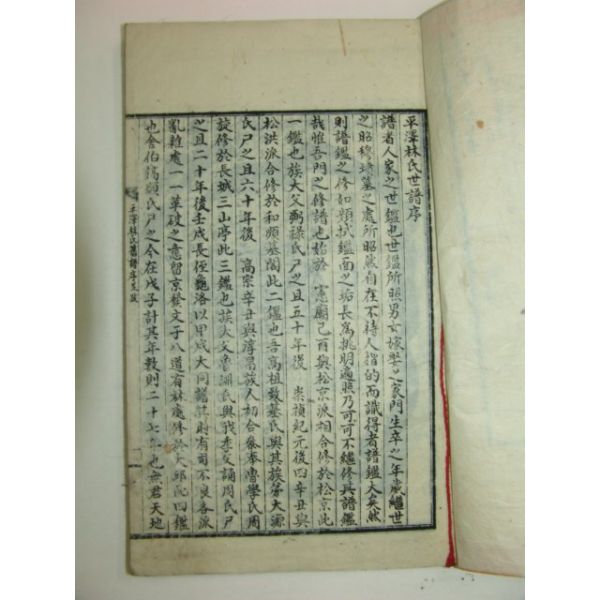 平澤林氏世譜序
譜者人家之世鑑也世鑑所照男女嫁娶之家門生卒之年歲繼世
之昭穆墳墓之處所昭然自在不待人指的而識得者譜鑑大矣然
則譜鑑之修如類拭鑑面之垢長爲挑明遍照乃可可不繼修其譜鑑
哉惟吾門之修譜也始於 憲廟己酉與松京派相合修於松京此
一鑑也族大父弼祿氏尸之且五十年後 崇禎紀元後四辛丑與
松洪派合修於和順墓閣此二鑑也吾高祖致基氏與其族弟大源
氏尸之且六十年後 高宗辛丑與淳昌族人初合 魯學氏周
旋修於長城三山亭此三鑑也族大父魯淵氏與我季父誦周氏尸
之且二十年後壬戌長侄龜洛以甲戌大同譜 時有司不良各派
亂 處一一革破之意留京發文于八道有林處修於大邱 四鑑
也舍伯鶴顯氏尸之今在戊子計其年數則二十七年也無君天地
平澤林氏舊譜序